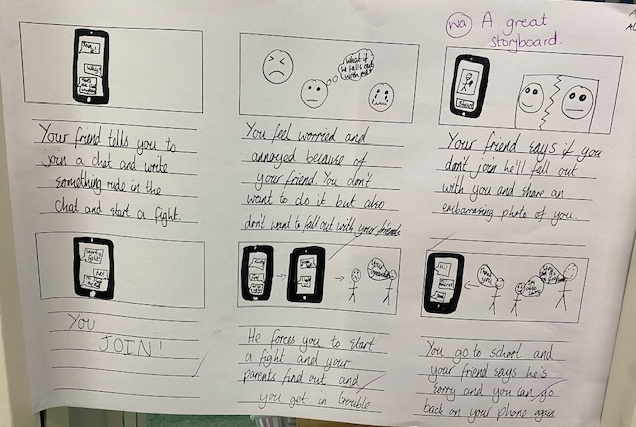 wa A great
storyboard.
Your friend tells you to
join a chat and write
something rude in the
chat and start a fight.
what if
he falls out
with me?
You feel worried and
annoyed because of
your friend. You don't
want to do it but also
don't want to fall out with your friends
Your friend says if you
don't join he'll fall out
with you and share an
embarrasing photo of you.
You
JOIN!
He forces you to start
a fight and your
parents find out and
you get in trouble
You go to school and
your friend says he's
sorry and you can go
back on your phone again